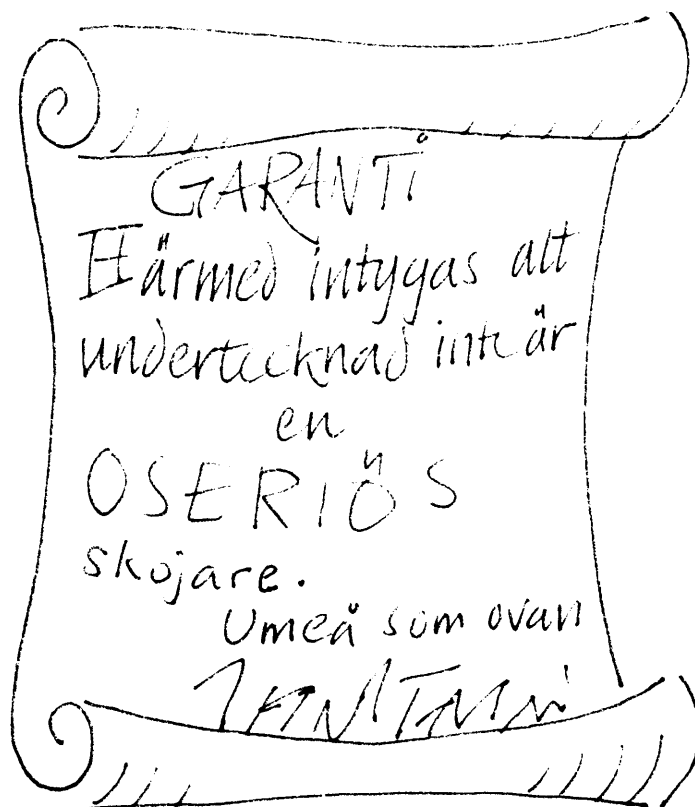 GARANTi
Härmed intygas att
undertecknad inte är
en
OSERIÖS
skojare.
Umeå som ovan